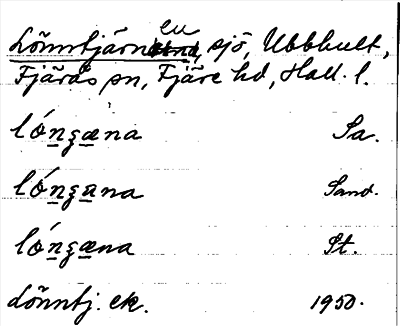 Lönntjärnen, sjö, Ubbhult,
Fjärås sn, Fjäre hd, Hall. l.
lóngæna Sa.
lóngana Sand.
lóngæna St.
Lönntj. ek. 1950.